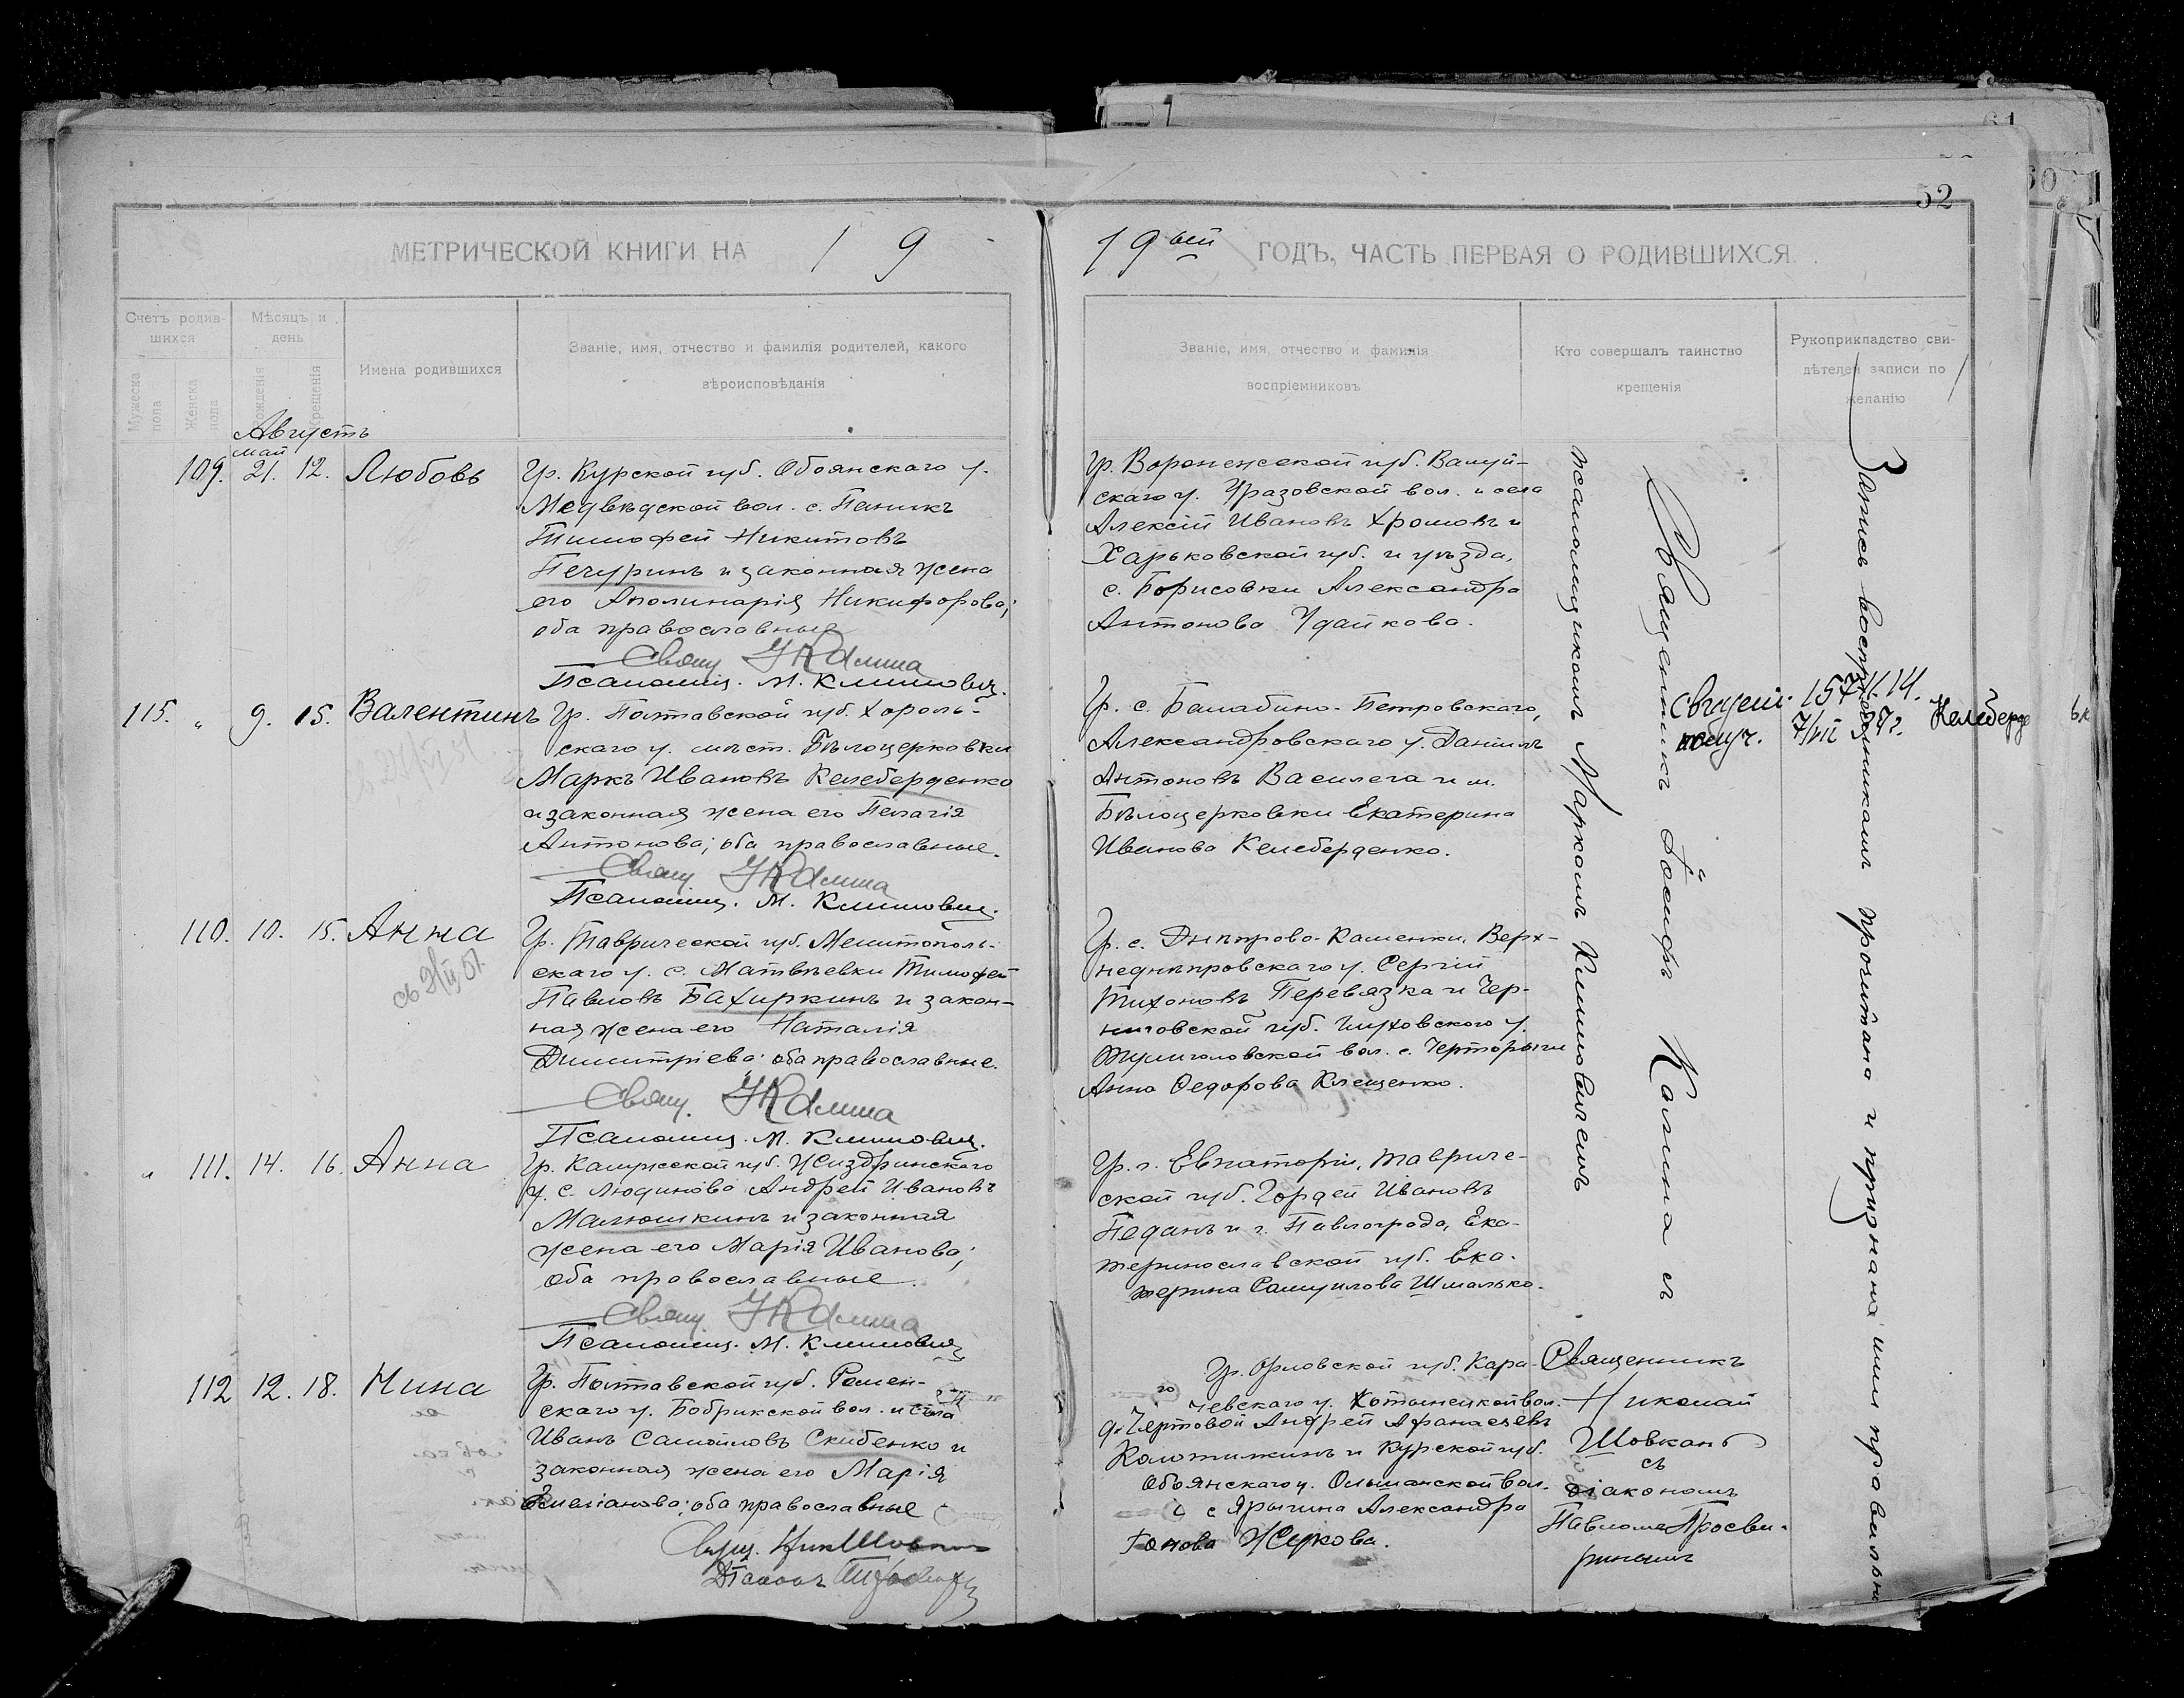 61
60
52
МЕТРИЧЕСКОЙ КНИГИ НА 19
19ый ГОДЪ, ЧАСТЬ ПЕРВАЯ О РОДИВШИХСЯ.
Счетъ родив-
шихся
Мужеска пола
Женска пола
Мѣсяцъ и
день
рожденія
крещенія
Имена родившихся
Званіе, имя, отчество и фамилія родителей, какого
вѣроисповѣданія
Званіе, имя, отчество и фамилія
воспріемниковъ
Кто совершалъ таинство
крещенія
Рукоприкладство сви-
дѣтелей записи по
желанію
Августъ
май
109. 21. 12. Любовь
Гр. Курской губ. Обоянскаго у.
Медвѣдской вол. с. Паникъ
Тимофей Никитовъ
Печуринъ и законная жена
его Аполинарія Никифорова;
оба православные
Свящ. І Калина
Псаломщ. М. Климович.
Гр. Воронежской губ. Валуй-
скаго у. Уразовской вол. и села
Алексій Ивановъ Хромовъ и
Харьковской губ. и уѣзда,
с. Борисовки Александра
Антонова Удайкова.
115. " 9. 15. Валентинъ
Гр. Полтавской губ. Хороль-
скаго у. мѣст. Бѣлоцерковки
Маркъ Ивановъ Келеберденко
и законная жена его Пелагія
Антонова; оба православные.
Свящ. І Калина
Псаломщ. М. Климович.
Гр. с. Баштабино-Петровскаго,
Александровскаго у. Даніилъ
Антоновъ Василега и м.
Бѣлоцерковки Екатерина
Иванова Келеберденко.
110. 10. 15. Анна
Гр. Таврической губ. Мелитополь-
скаго у. с. Матвѣевки Тимофей
Павловъ Бахиркинъ и закон-
ная жена его Наталія
Димитріева; оба православные.
Свящ. І Калина
Псаломщ. М. Климович.
Гр. с. Днѣпрово-Каменки, Верх-
неднѣпровскаго у. Сергій
Тихоновъ Перевязка и Чер-
ниговской губ. Глуховскаго у.
Тулиголовской вол. с. Черторыги
Анна Федорова Клещенко.
" 111. 14. 16. Анна
Гр. Калужской губ. Жиздринскаго
у. с. Людиново Андрей Ивановъ
Малюшкинъ и законная
жена его Марія Иванова;
оба православные.
Свящ. І Калина
Псаломщ. М. Климович
Гр. г. Евпаторіи, Тавриче-
ской губ. Гордей Ивановъ
Педанъ и г. Павлограда, Ека-
теринославской губ. Ека-
терина Самуилова Шмалько.
112 12. 18. Нина
Гр. Полтавской губ. Ромен-
скаго у. Бобрикской вол. и села
Иванъ Самойловъ Скибенко и
законная жена его Марія
Емеліанова; оба православные
Свящ. Ник Шовкан
Діаконъ
Гр. Орловской губ. Кара-
чевскаго у. Хотынецкой вол.
д. Чертовой Андрей Афанасьевъ
Колотижинъ и Курской губ.
Обоянскаго у. Ольшанской вол.
с Ярыгина Александра
Жеркова.
Священникъ Іосифъ Калина съ
псаломщикомъ Маркомъ Климовичемъ
Священникъ
Николай
Шовканъ
съ
діакономъ
Павломъ Просви-
ринымъ
Запись воспріемникамъ прочитана и признана ими правильн
Свидет.
получ.
Келеберде